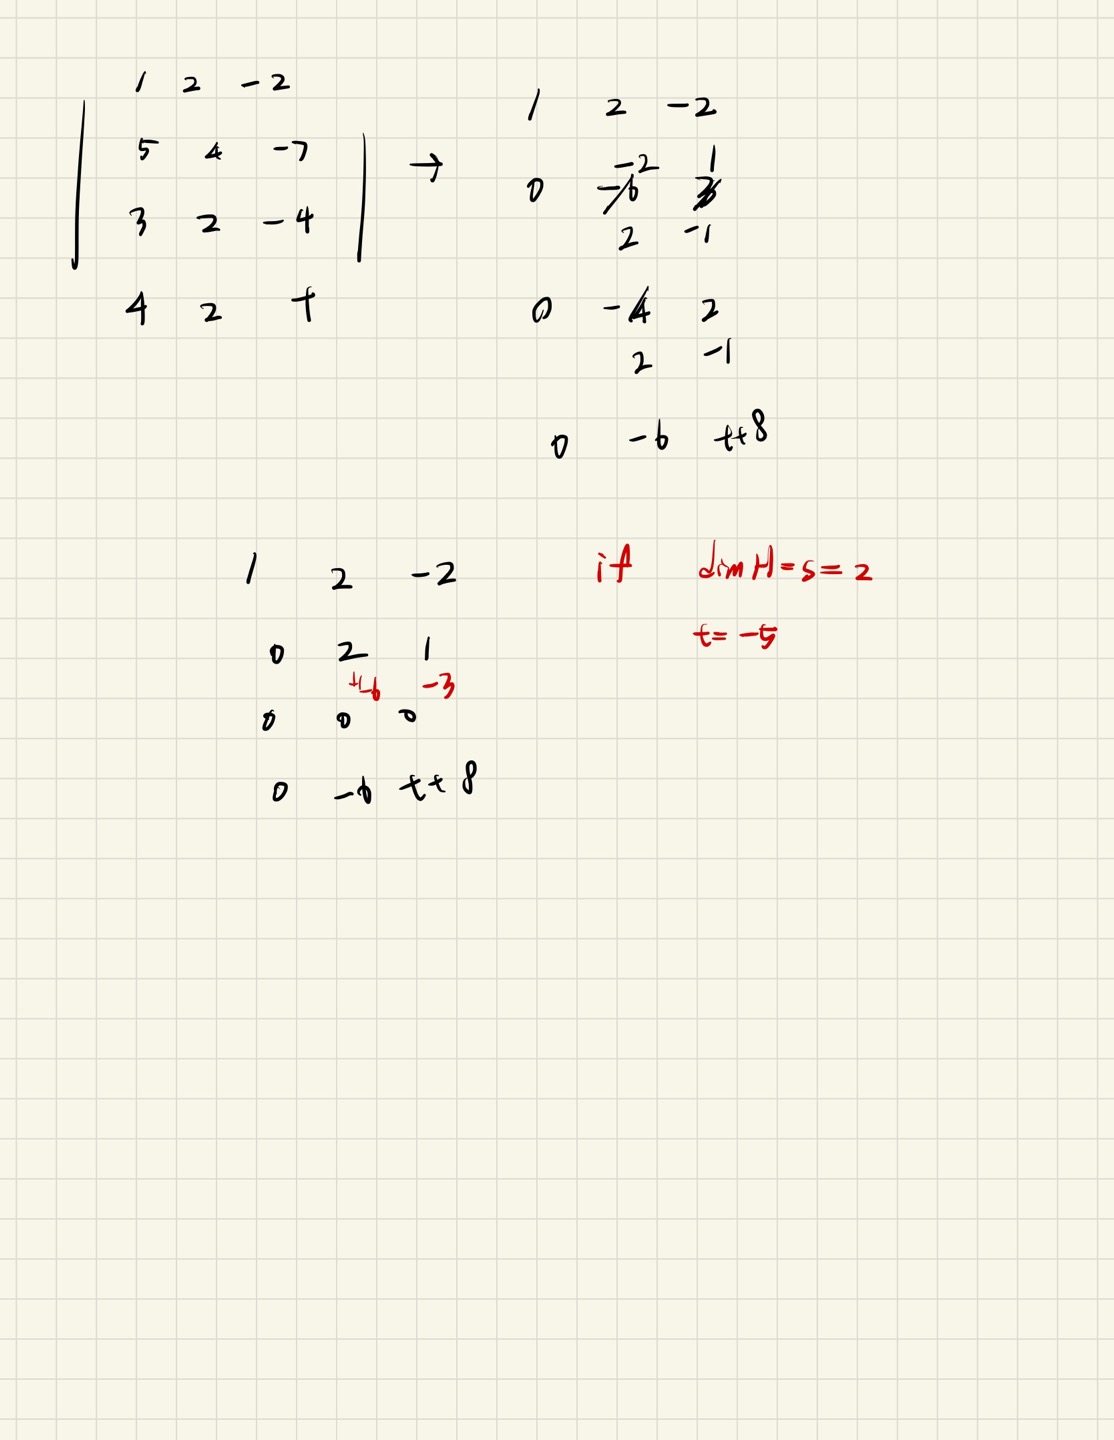 1 2 -2
5 4 -7 →
3 2 -4
4 2 t
1 2 -2
-2 1
0 -6 3
2 -1
0 -4 2
2 -1
0 -6 t+8
1 2 -2
0 2 1
+6 -3
0 0 0
0 -6 t+8
if dim H = s = 2
t = -5